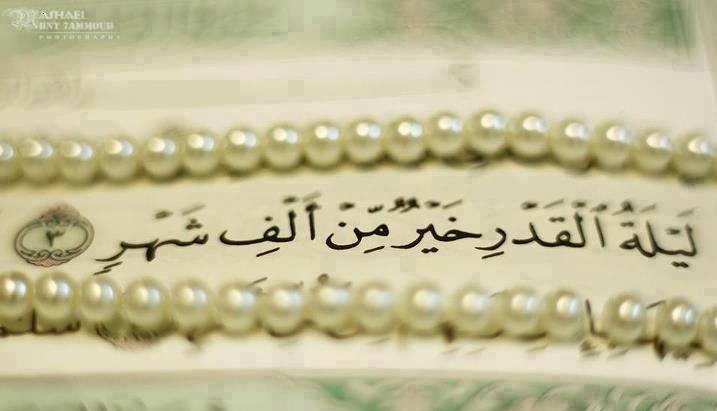 BNT 7AMMOUD
PHOTOGRAPHY
لَيْلَةُ الْقَدْرِ خَيْرٌ مِّنْ أَلْفِ شَهْرٍ ٣